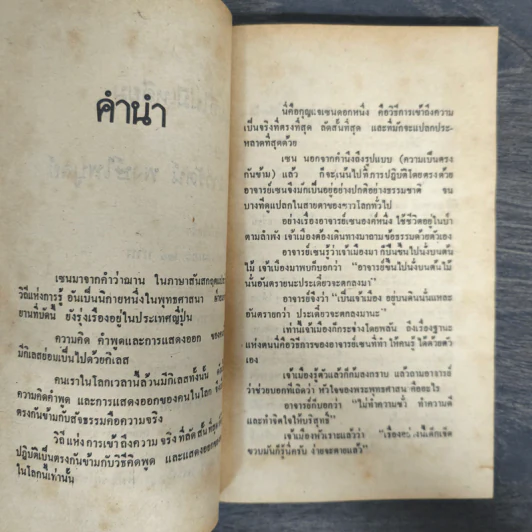 คำนำ
เซนมาจากคำว่าฌาน ในภาษาสันสกฤตแปลว่า
วิถีแห่งการรู้ อันเป็นนิกายหนึ่งในพุทธศาสนา
ยังรุ่งเรืองอยู่ในประเทศญี่ปุ่น
ความคิด คำพูดและการแสดงออก ของคน
มีกิเลสย่อมเป็นไปด้วยกิเลส
คนเราในโลกเวลานี้ล้วนมีกิเลสทั้งนั้น
ความคิดคำพูด และการแสดงออกของคนในโลก
ตรงกันข้ามกับสัจธรรมคือความจริง
วิถีแห่งการเข้าถึงความจริงที่ลัดสั้นที่สุด
ปฏิบัติเป็นตรงกันข้ามกับวิธีคิดพูด และแสดงออกของคน
ในโลกนี้เท่านั้น
นี่คือกุญแจเซนดอกหนึ่ง คือวิธีการเข้าถึงความ
เป็นจริงที่ตรงที่สุด ลัดสั้นที่สุด และที่มักจะแปลกประ-
หลาดที่สุดด้วย
เซน นอกจากคำนึงถึงรูปแบบ (ความเป็นตรง
กันข้าม) แล้ว ก็จะเน้นไปที่การปฏิบัติโดยตรงด้วย
อาจารย์เซนจึงมักเป็นอยู่อย่างปกติอย่างธรรมชาติ จน
บางทีดูแปลกในสายตาของชาวโลกทั่วไป
อย่างเรื่องอาจารย์เซนองค์หนึ่ง ใช้ชีวิตอยู่ในป่า
ตามลำพัง เจ้าเมืองต้องเดินทางมาถามข้อธรรมด้วยตัวเอง
อาจารย์เซนรู้ว่าเจ้าเมืองมา ก็ปีนขึ้นไปนั่งบนต้น
ไม้ เจ้าเมืองมาพบก็บอกว่า "อาจารย์ขึ้นไปนั่งบนต้นไม้
นั้นอันตรายนะประเดี๋ยวจะตกลงมา"
อาจารย์จึงว่า "เป็นเจ้าเมือง อยู่บนดินนั่นแหละ
อันตรายกว่า ประเดี๋ยวจะตกลงมานะ"
เท่านี้เจ้าเมืองก็กระจ่างโดยพลัน ถึงเรื่องฐานะ
แห่งตนนี่คือวิธีการของอาจารย์เซนที่ทำ ให้คนรู้ ได้ด้วยตัว
เอง
เจ้าเมืองรู้ตัวแล้วก็ก้มลงกราบ แล้วถามอาจารย์
ว่าช่วยบอกที่เถิดว่า หัวใจของพระพุทธศาสน คืออะไร
อาจารย์ก็บอกว่า "ไม่ทำความชั่ว ทำความดี
และทำจิตใจให้บริสุทธิ์"
เจ้าเมืองหัวเราะแล้วว่า "เรื่องอย่างนี้เด็กเจ็ด
ขวบมันก็รู้นี่ครับ ง่ายจะตายแล้ว"